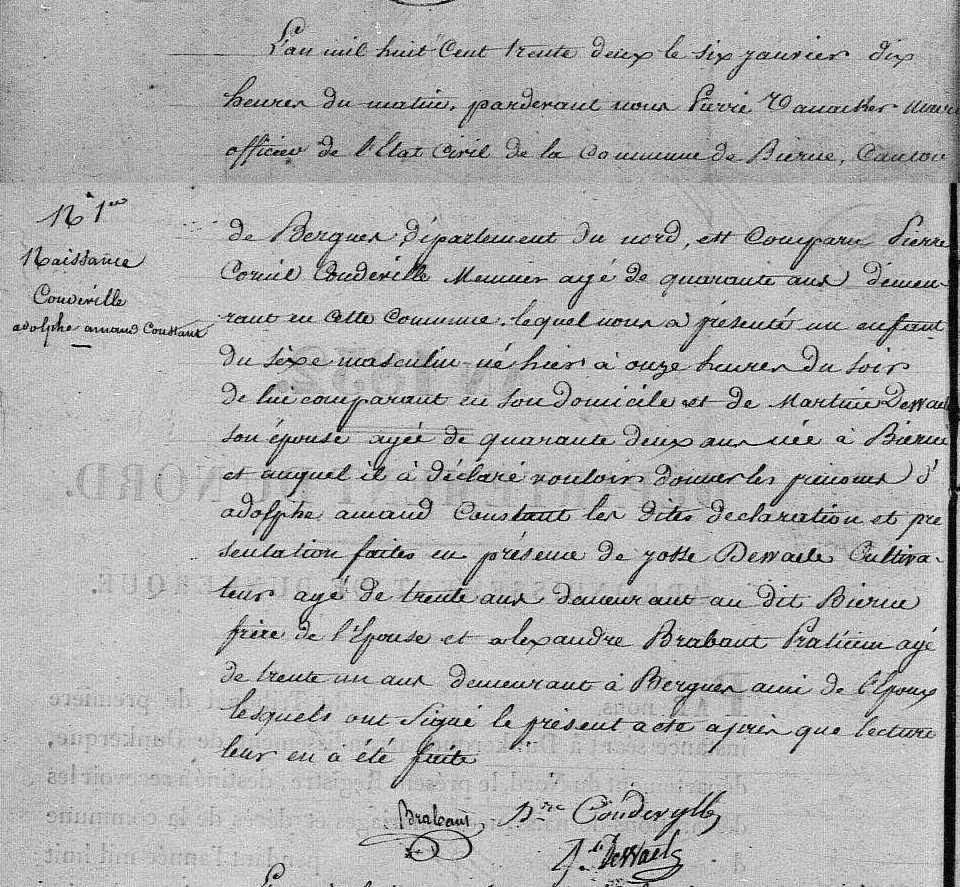 L'an mil huit Cent trente deux le six janvier dix
heures du matin, pardevant nous Pierre maire
officier de l'Etat Civil de la Commune de Bierne, Canton
N° 1er
Naissance
Couderville
adolphe amand Constant
de Bergues, département du nord, est Comparu Pierre
Cornil Couderville Meunier agé de quarante ans demeu-
rant en cette Commune, lequel nous a présenté un enfant
du sexe masculin né hier à onze heures du soir
de lui comparant en son domicile et de Martine DeWaele
son épouse agée de quarante deux ans née à Bierne
et auquel il à déclaré vouloir donner les prénoms d'
adolphe, amand Constant les dites declaration et pré
sentation faites en présence de josse Dewaele Cultiva-
teur agé de trente ans demeurant au dit Bierne
frère de l'Epouse et alexandre Brabant Praticien agé
de trente un ans demeurant à Bergues ami de l'Epoux
lesquels ont Signé le présent acte après que lecture
leur en à été faite
Brabant Pre Coudevylle
DeWaele